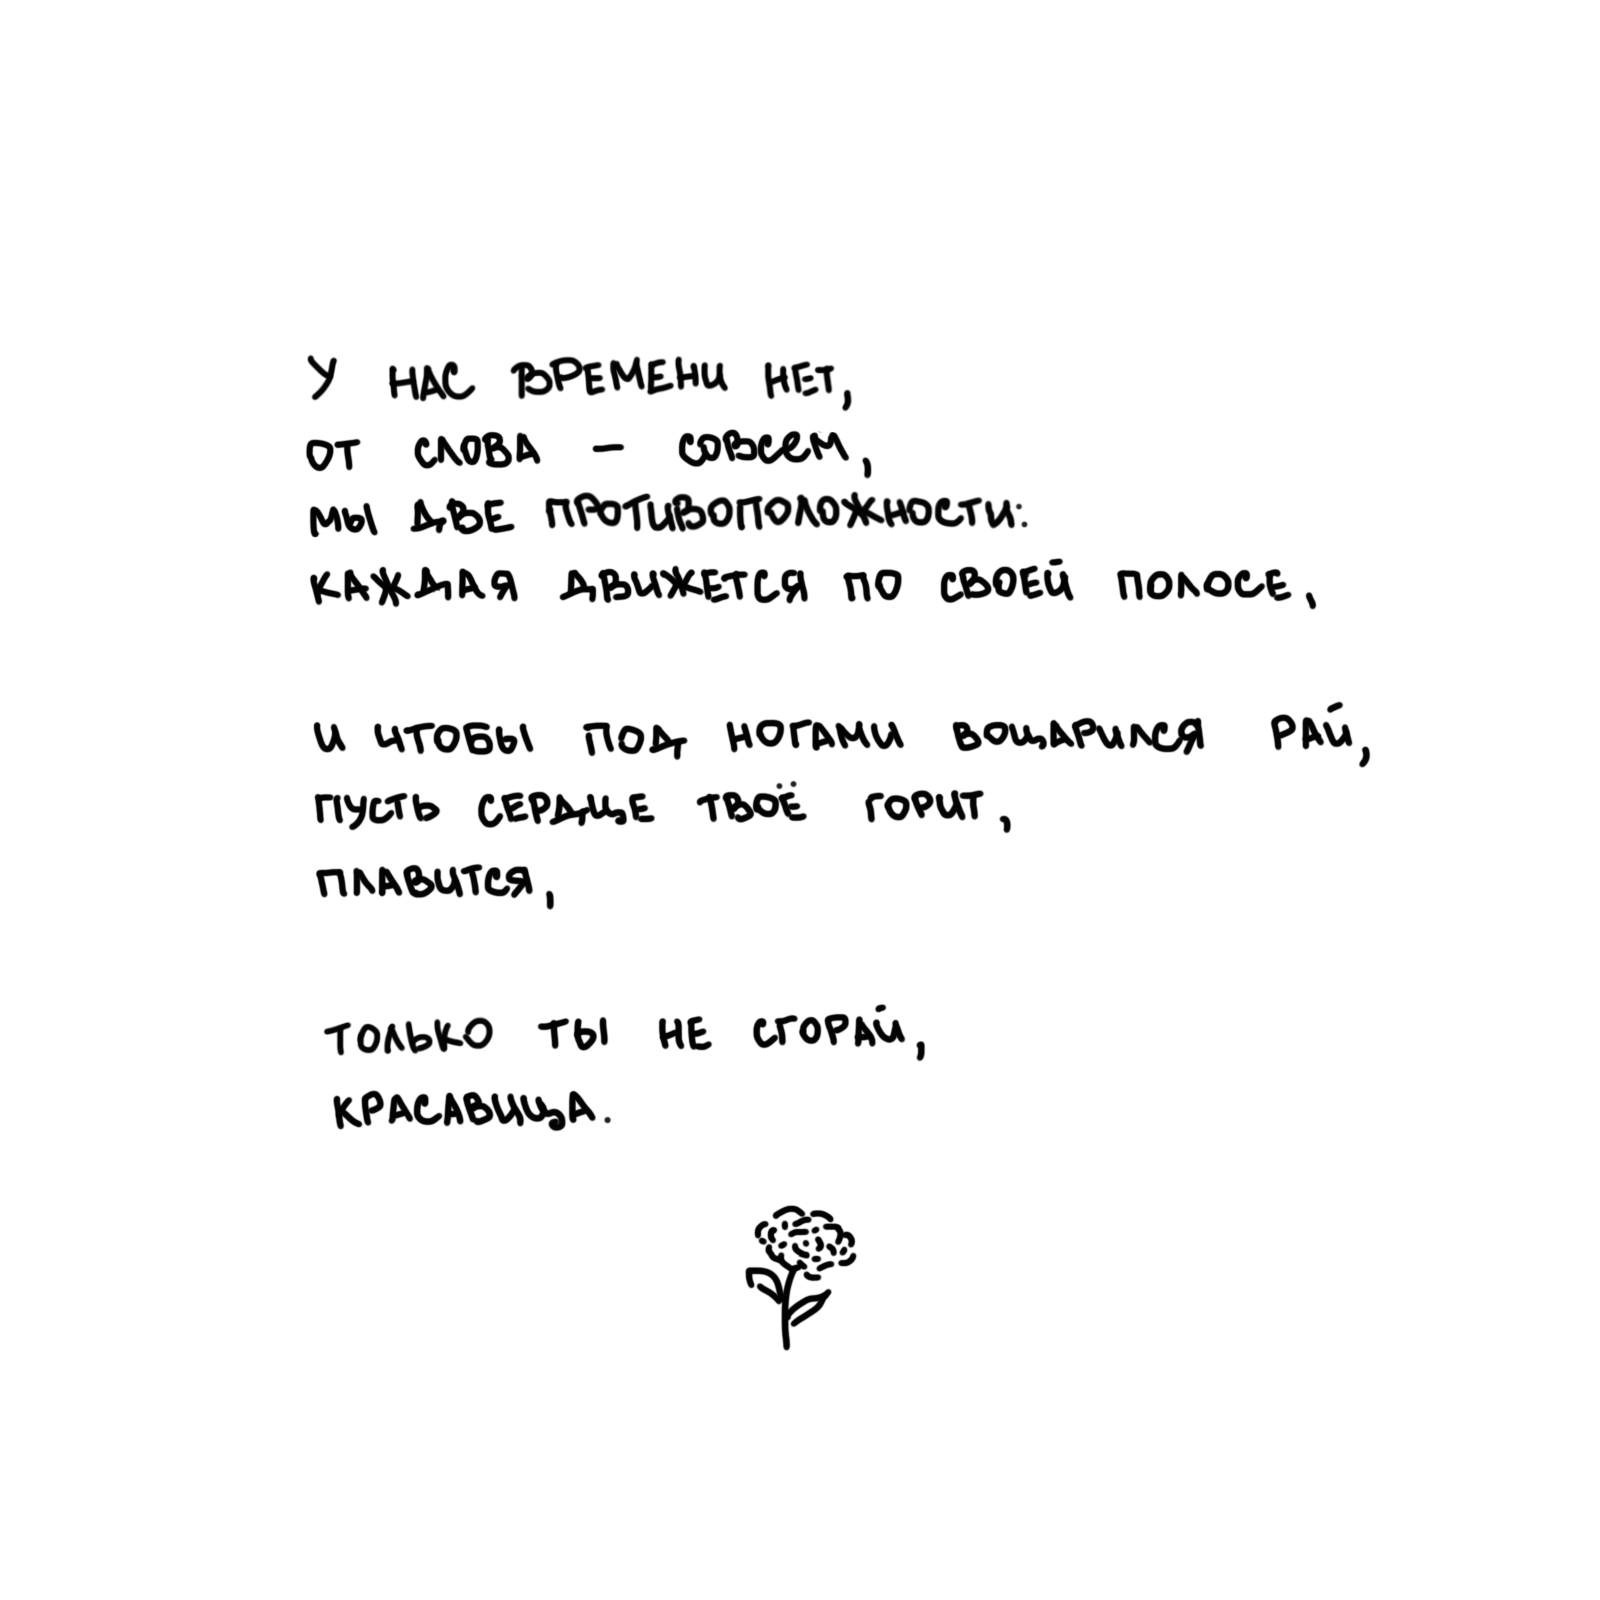 У НАС ВРЕМЕНИ НЕТ,
ОТ СЛОВА – СОВСЕМ,
МЫ ДВЕ ПРОТИВОПОЛОЖНОСТИ:
КАЖДАЯ ДВИЖЕТСЯ ПО СВОЕЙ ПОЛОСЕ,
И ЧТОБЫ ПОД НОГАМИ ВОЦАРИЛСЯ РАЙ,
ПУСТЬ СЕРДЦЕ ТВОЁ ГОРИТ,
ПЛАВИТСЯ,
ТОЛЬКО ТЫ НЕ СГОРАЙ,
КРАСАВИЦА.